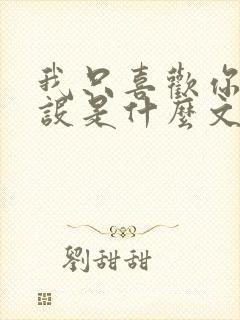 我只喜歡你
設是什麼文
劉甜甜